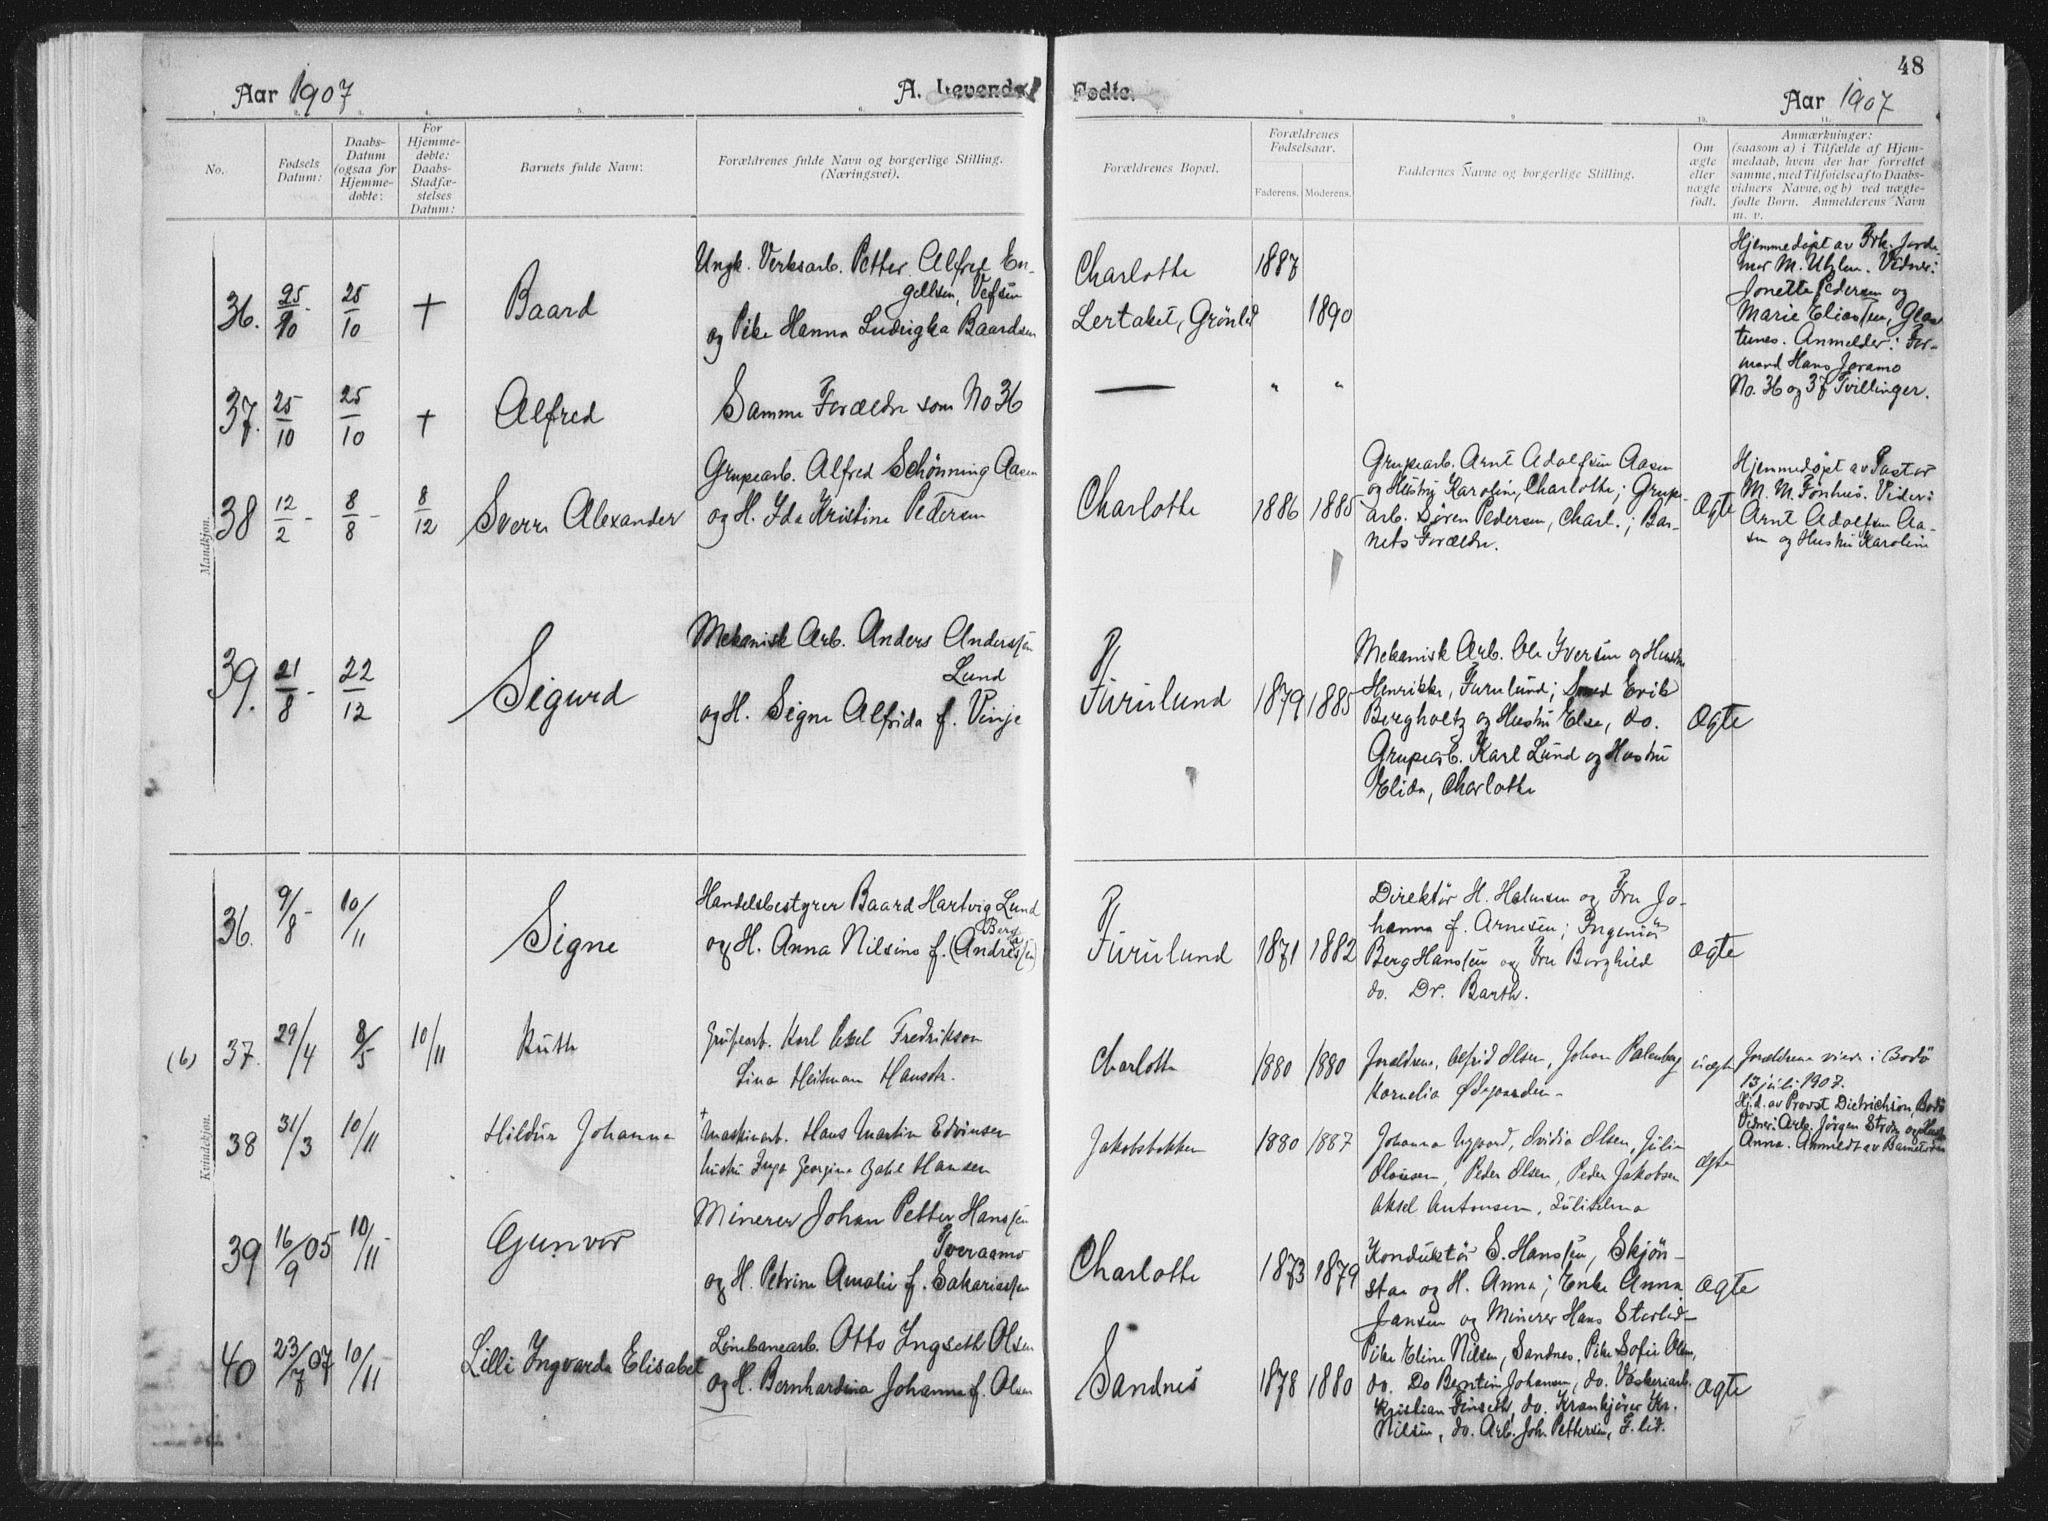 48
Aar 1907
A. Levende Fødte.
Aar 1907
1. 2. 3. 4. 5. 6. 7. 8. 9. 10. 11.
No.
Fødsels Datum:
Daabs-Datum (ogsaa for Hjemme-døbte:
For Hjemme-døbte: Daabs-Stadfæ-stelses Datum:
Barnets fulde Navn:
Forældrenes fulde Navn og borgerlige Stilling.
(Næringsvei).
Forældrenes Bopæl.
Forældrenes Fødselsaar.
Faderens. Moderens.
Faddernes Navne og borgerlige Stilling.
Om ægte eller uægte født.
Anmærkninger:
(saasom a) i Tilfælde af Hjem-
medaab, hvem der har forrettet
samme, med Tilføielse af to Daabs-
vidners Navne, og b) ved uægte-
fødte Børn. Anmelderens Navn
m. v.
Mandkjøn.
36. 25/10 25/10 + Baard
Ungk. Verksarb. Petter Alfred En-
gellsen, Vefsen
og Pike Hanna Ludvigka Baardsen
Charlotte 1887
Lertaket, Grönlid 1890
Hjemmedöpt av Frk. Jorde-
mor M. Vidner:
Jonette Pedersen og
Marie Eliassen,
Anmelder: For-
mand Hans Joramo
No. 36 og 37 Tvillinger.
37. 25/10 25/10 + Alfred
Samme Forældre som No 36
— " "
38 12/2 8/8 8/12 Sverre Alexander
Grupearb. Alfred Schönning Aasen
og H. Ida Kristine Pedersen
Charlotte 1886 1885
Grupearb. Arnt Adolfsen Aasen
og Hustru Karoline, Charlotte; Grupe-
arb. Sören Pedersen, Charl.; Bar-
nets Forældre.
Ægte
Hjemmedöpt av Pastor
M. M. Fonhus. Vidner:
Arnt Adolfsen Aa-
sen og Hustru Karoline
39. 21/8 22/12 Sigurd
Mekanisk Arb. Anders Anderssen
Lund
og H. Signe Alfrida f. Vinje
Furulund 1879 1885
Mekanisk Arb. Ole Iversen og Hustru
Henrikke, Furulund; Smed Erik
Bergholtz og Hustru Else, do.
Grupearb. Karl Lund og Hustru
Elida, Charlotte
Ægte
Kvindekjøn.
36. 9/8 10/11 Signe
Handelsbestyrer Baard Hartvig Lund
Berg
og H. Anna Nilsine f. (Andressen)
Furulund 1871 1882
Direktör H. Holmsen og Fru Jo-
hanna f. Arnesen; Ingeniör
Berg Hanssen og Fru Borghild
do. Dr. Barth.
Ægte
(6) 37. 29/4 8/5 10/11 Ruth
Grubearb. Karl Axel Fredrikson
Lina Heitman Hansdtr.
Charlotte 1880 1880
Forældrene, Alfrid Olsen, Johan Palenberg
Kornelia Ødegaarden
uægte
Forældrene viede i Bodö
13 juli 1907.
38 31/3 10/11 Hildur Johanna
+
Maskinarb. Hans Martin Edvinsen
hustru Inga Georgine Hansen
Jakobsbakken 1880 1887
Johanna Nygaard, Ovidia Olsen, Julie
Olausen, Peder Olsen, Peder Jakobsen
Aksel Antonsen, Sulitelma
Ægte
Hj.d. av Provst Dietrichson, Bodö
Vidner: Arb. Jörgen Ström og Hustru
Anna. Anmeldt av Barnets
39 16/9 05 10/11 Gunvor
Minerer Johan Petter Hanssen
Tveraamo
og H. Petrine Amalie f. Sakariassen
Charlotte 1873 1879
Konduktör S. Hanssen, Skjön-
staa og H. Anna; Enke Anna
Jansen og Minerer Hans Storlid
Ægte
40 23/7 07 10/11 Lilli Ingvarda Elisabet
Linebanearb. Otto Ingseth Olsen
og H. Bernhardina Johanna f. Olsen
Sandnes 1878 1880
Pike Eline Nilsen, Sandnes. Pike Sofie Olsen,
do. Do Bentin Johansen, do. Vaskeriarb.
Kristian Finseth, do. Krankjörer Kr.
Nilsen, do. Arb. Joh. Pettersen, F. lid.
Ægte